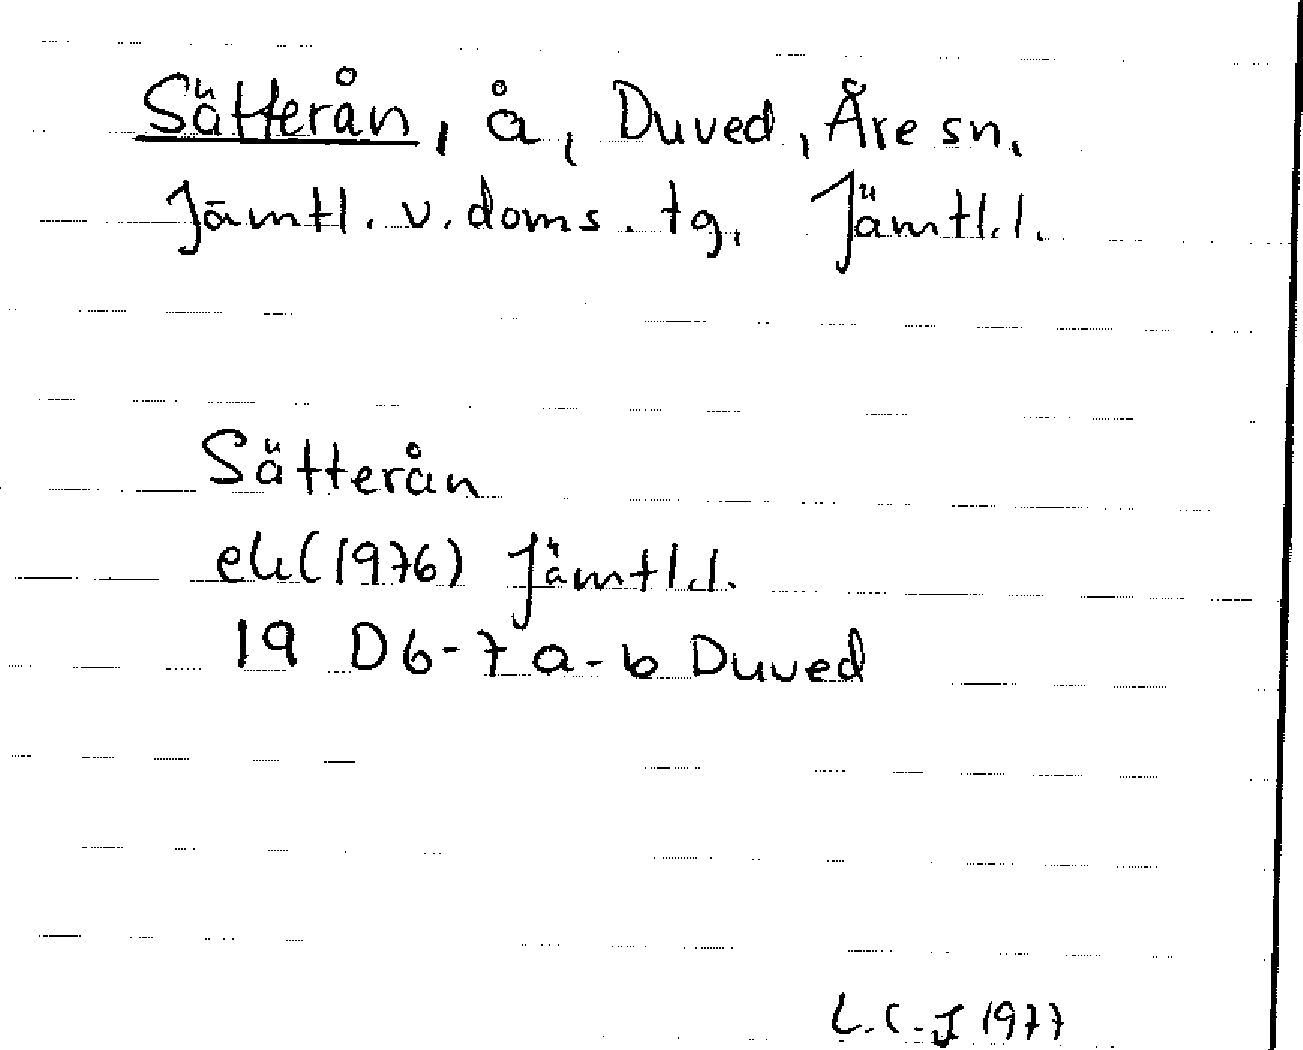 Sätterån, å, Duved, Åre sn,
Jämtl. v. doms. tg, Jämtl.l.
Sätterån
ek (1976) Jämtl.l.
19 D 6-7 a-b Duved
L.C.J 1977